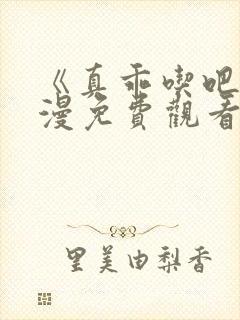 《真乖喫吧
漫免費觀看
里美由梨香